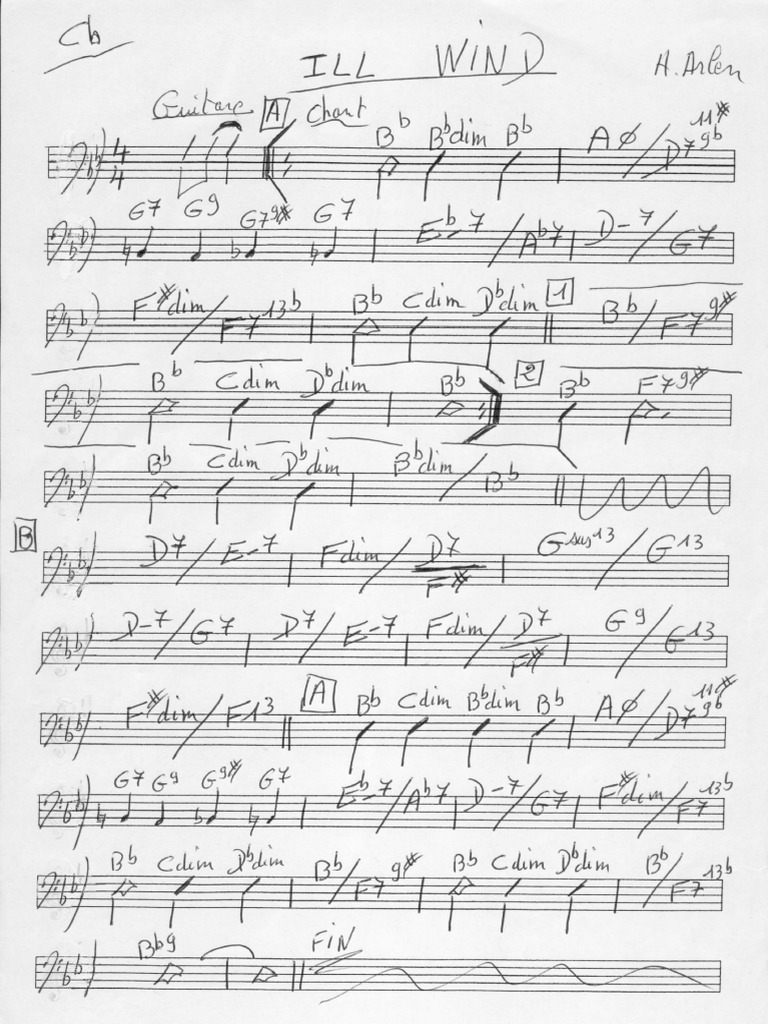 Cb
ILL WIND
H. Arlen
Guitare A Chant
4/4 Bb Bbdim Bb AØ / D7 9b 11#
G7 G9 G79# G7 Eb-7 / Ab7 D-7 / G7
F#dim / F7 13b Bb Cdim Dbdim 1 Bb / F79#
Bb Cdim Dbdim Bb 2 Bb F79#
Bb Cdim Dbdim Bbdim / Bb
B D7 / E-7 Fdim / D7/F# Gsus13 / G13
D-7 / G7 D7 / E-7 Fdim / D7/F# G9 / G13
F#dim / F13 A Bb Cdim Bbdim Bb AØ / D7 9b 11#
G7 G9 G9# G7 Eb-7 / Ab7 D-7 / G7 F#dim / F7 13b
Bb Cdim Dbdim Bb / F7 9# Bb Cdim Dbdim Bb / F7 13b
Bb9 FIN